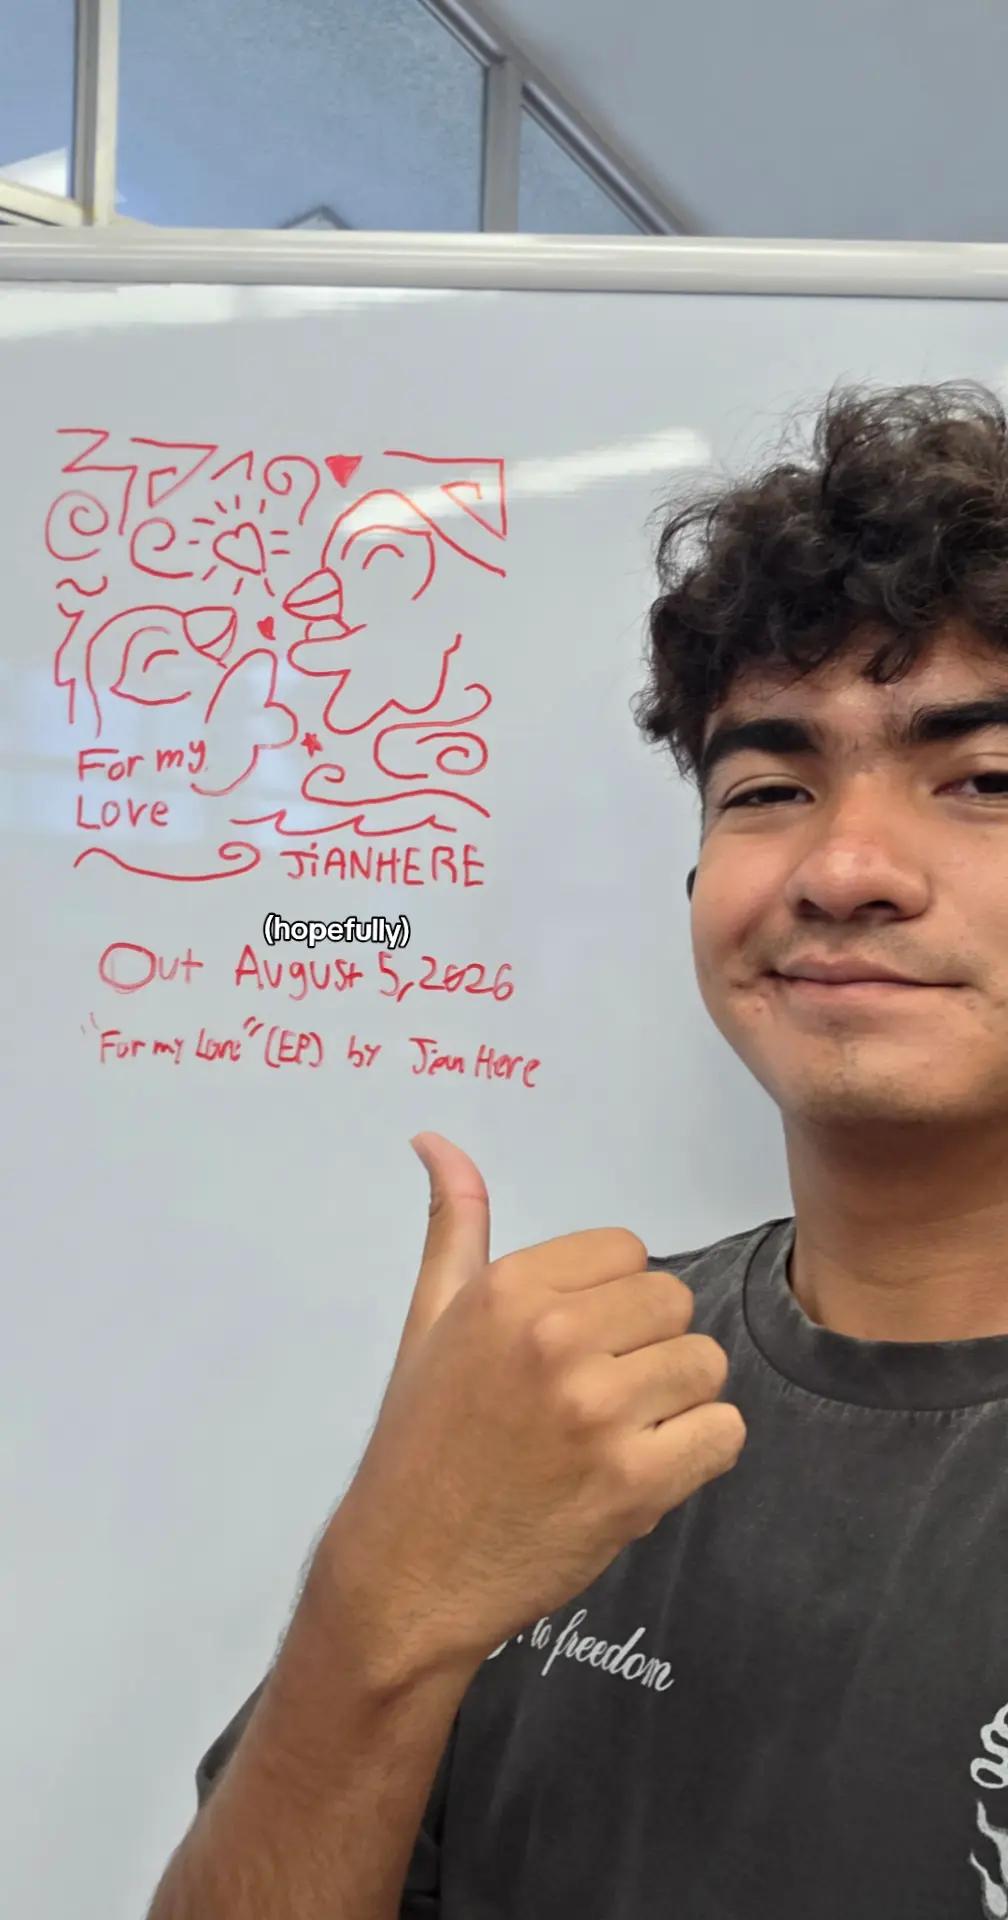 For my
Love
JiANHERE
(hopefully)
Out August 5, 2026
"For my Love" (EP) by Jian Here
to freedom